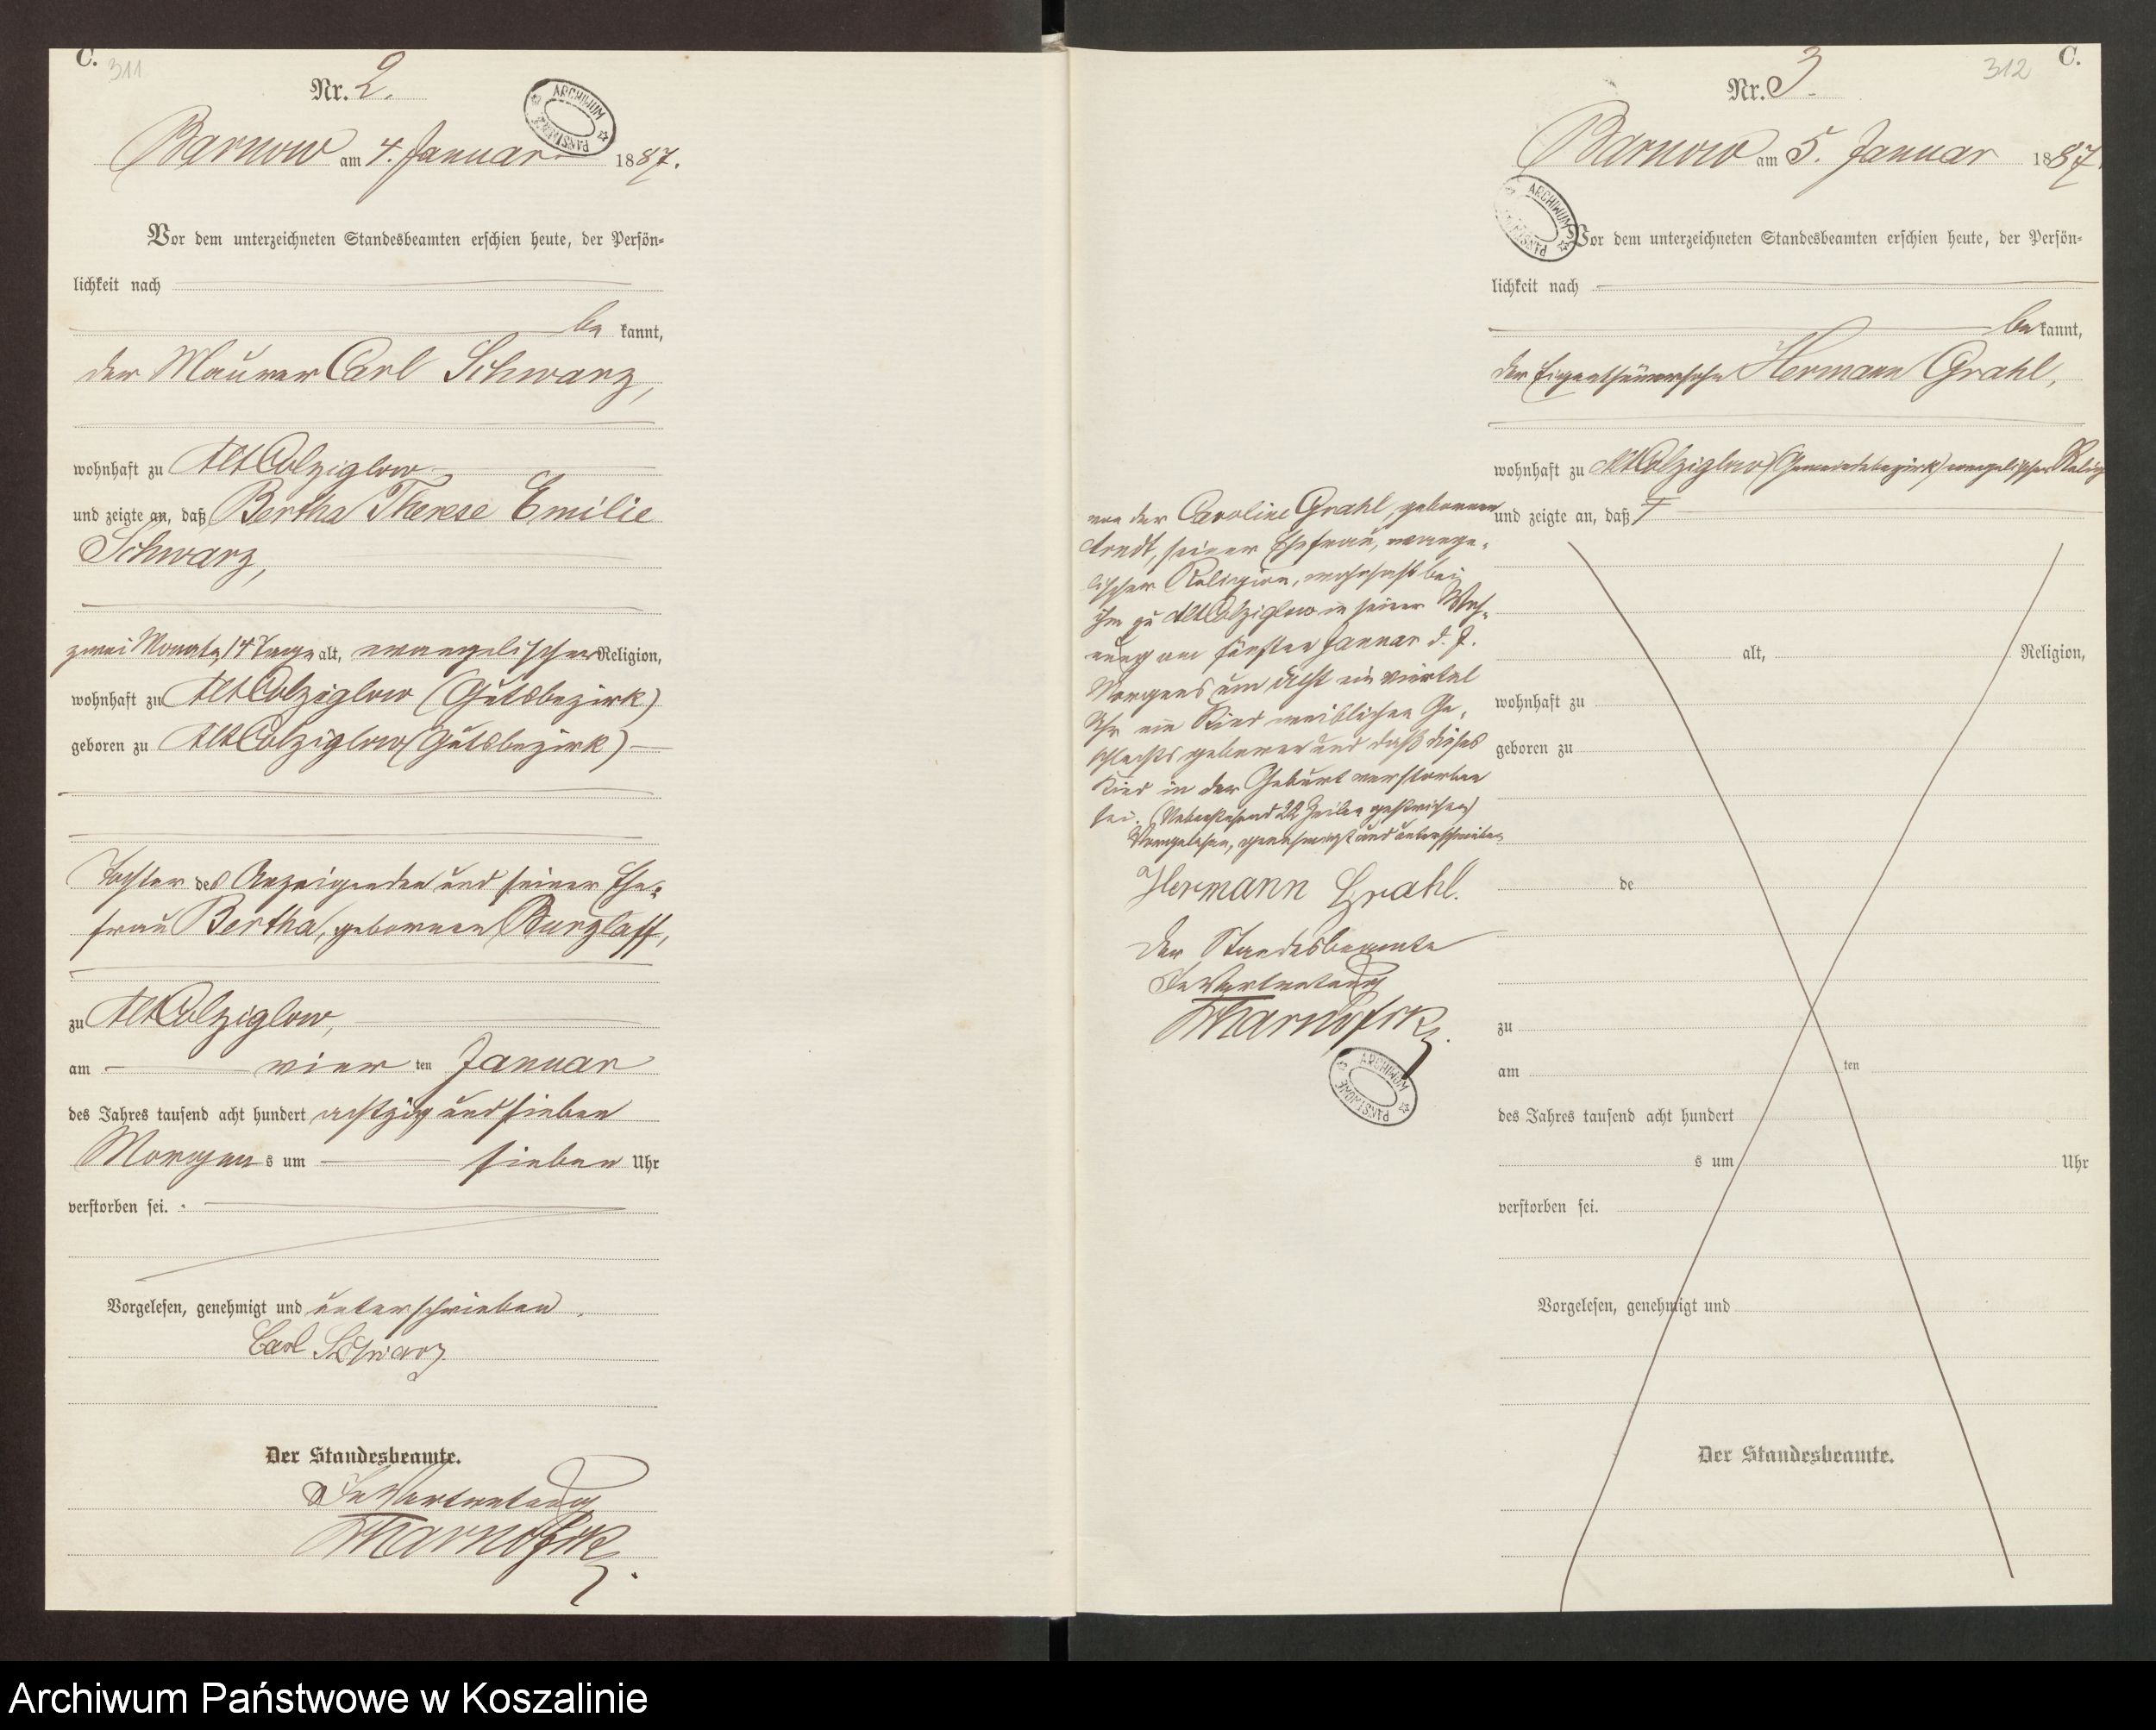 C.
311
Nr. 2.
ARCHIWUM PAŃSTWOWE
Barnow am 4. Januar 1887.
Vor dem unterzeichneten Standesbeamten erschien heute, der Persön-
lichkeit nach
be kannt,
der Maurer Carl Schwarz,
wohnhaft zu Alt Colziglow
und zeigte an, daß Bertha Therese Emilie
Schwarz,
zwei Monate, 14 Tage alt, evangelischer Religion,
wohnhaft zu Alt Colziglow (Gutsbezirk)
geboren zu Alt Colziglow (Gutsbezirk)
Tochter des Anzeigenden und seiner Ehe-
frau Bertha, geborenen Burzlaff,
zu Alt Colziglow,
am vier ten Januar
des Jahres tausend acht hundert achtzig und sieben
Morgens um sieben Uhr
verstorben sei.
Vorgelesen, genehmigt und unterschrieben.
Carl Schwarz
Der Standesbeamte.
In Vertretung
C.
312
Nr. 3.
Barnow am 5. Januar 1887.
ARCHIWUM PAŃSTWOWE
Vor dem unterzeichneten Standesbeamten erschien heute, der Persön-
lichkeit nach
be kannt,
der Eigenthümersohn Hermann Grahl,
wohnhaft zu Alt Colziglow (Gemeindebezirk) evangelischer Relig
und zeigte an, daß
von der Caroline Grahl, geborenen
Arndt, seiner Ehefrau, evange-
lischer Religion, wohnhaft bei
ihm zu Alt Colziglow in seiner Woh-
nung am fünften Januar d. J.
Morgens um acht ein viertel
Uhr ein Kind weiblichen Ge-
schlechts geboren und daß dieses
Kind in der Geburt verstorben
sei. (Nebenstehend 22 Zeilen gestrichen)
Vorgelesen, genehmigt und unterschrieben
Hermann Grahl.
Der Standesbeamte
In Vertretung
ARCHIWUM PAŃSTWOWE
alt, Religion,
wohnhaft zu
geboren zu
de
zu
am ten
des Jahres tausend acht hundert
s um Uhr
verstorben sei.
Vorgelesen, genehmigt und
Der Standesbeamte.
Archiwum Państwowe w Koszalinie